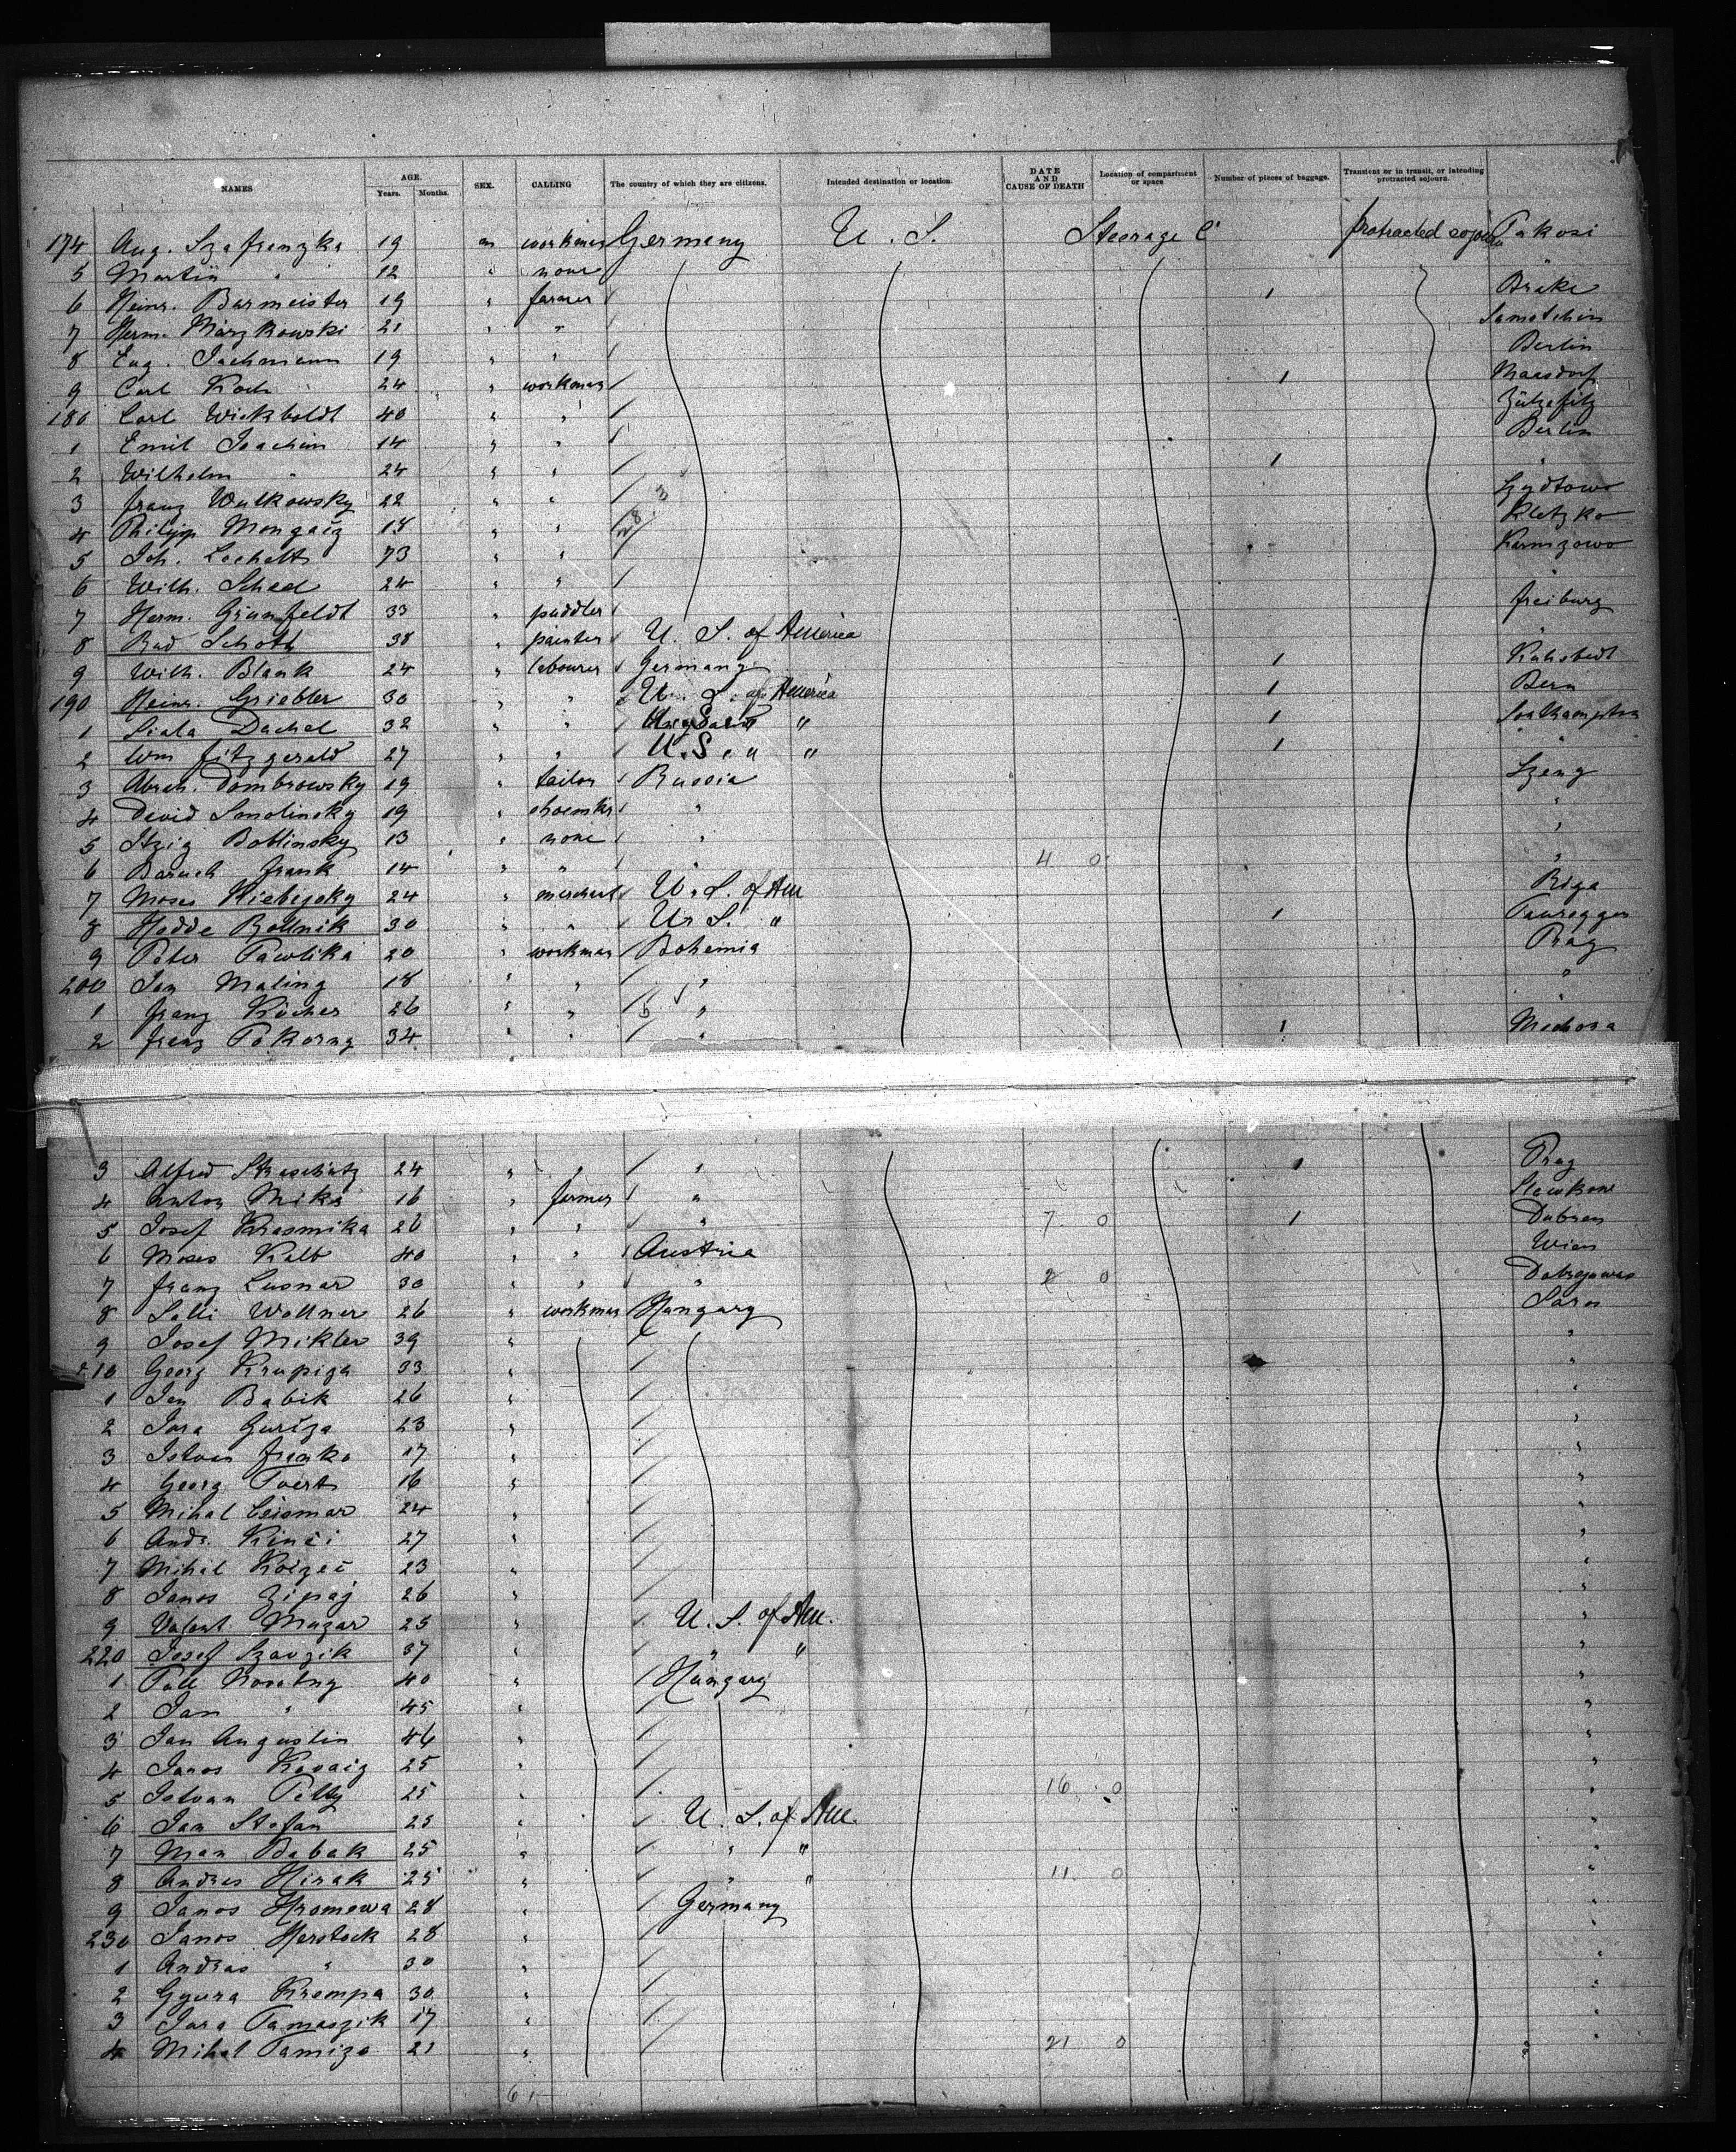 NAMES AGE. Years. Months. SEX. CALLING The country of which they are citizens. Intended destination or location. DATE AND CAUSE OF DEATH Location of compartment or space Number of pieces of baggage. Transient or in transit, or intending protracted sojourn.
174 Aug. Szafranzka 19 m workman Germany U. S. Steerage C protracted sojourn Pakosi
5 Martin " 12 " none
6 Heinr. Barmeister 19 " farmer 1 Brake
7 Herm. 21 " " Samotchin
8 Eug. Jachmann 19 " " Berlin
9 Carl Koch 24 " workman 1 Maasdorf
180 Carl Wickboldt 40 " "
1 Emil Joachim 14 " " Berlin
2 Wilhelm " 24 " " 1 "
3 Franz Wulkowsky 22 " "
4 Philipp 18 " " Kletzko
5 Joh. Lechelt 73 " "
6 Wilh. Sched 24 " "
7 Herm. Grünfeldt 33 " puddler Freiburg
8 Rud Schoth 38 " painter U. S. of America "
9 Wilh. Blank 24 " labourer Germany 1 Kuhstedt
190 Heinr. Griebler 30 " " U. S. of America 1 Bern
1 Dachel 32 " " " 1 Southampton
2 Wm Fitzgerald 27 " " U. S. " " 1 "
3 Abrah. Dombrowsky 19 " tailor Russia
4 David Smolinsky 19 " shoemkr " "
5 Itzig Boblinsky 13 " none " "
6 Baruch Frank 14 " " " 4 0 "
7 Moses 24 " merchant U. S. of Am Riga
8 Hodde Bollnik 30 " " U. S. " 1 Tauroggen
9 Peter Pawlika 20 " workman Bohemia Prag
200 Jan Maling 18 " " " "
1 Franz Kocher 26 " " " "
2 Franz Pokorny 34 " " " 1
3 Alfred 24 " " " 1 Prag
4 Anton Mika 16 " farmer "
5 Josef Krasmika 26 " " " 7 0 1 Dobran
6 Moses Kalb 40 " " Austria Wien
7 Franz Lusnar 30 " " " 2 0
8 Salli Wollner 26 " workman Hungary Saros
9 Josef Mikler 39 " "
210 Georg Krupiga 33 " "
1 Jan Babik 26 " "
2 Jura 23 " "
3 Istvan Franko 17 " "
4 Georg 16 " "
5 Mihal 24 " "
6 Andr. Kinci 27 " "
7 Mihal 23 " "
8 Janos 26 " "
9 Mazar 25 " U. S. of Am. "
220 Josef Szavzik 37 " " " "
1 Pall 40 " Hungary "
2 Jan " 45 " "
3 Jan Augustin 46 " "
4 Janos Kovaig 25 " "
5 Istvan 25 " 16 0 "
6 Jan Stefan 25 " U. S. of Am. "
7 Babak 25 " " " "
8 Andras Hirak 25 " " " 11 0 "
9 Janos Hromewa 28 " Germany "
230 Janos Herstock 28 "
1 Andras " 30 " "
2 Gyura Krempa 30 " "
3 Jura Tamaszik 17 " "
4 Mihal 21 " 21 0 "